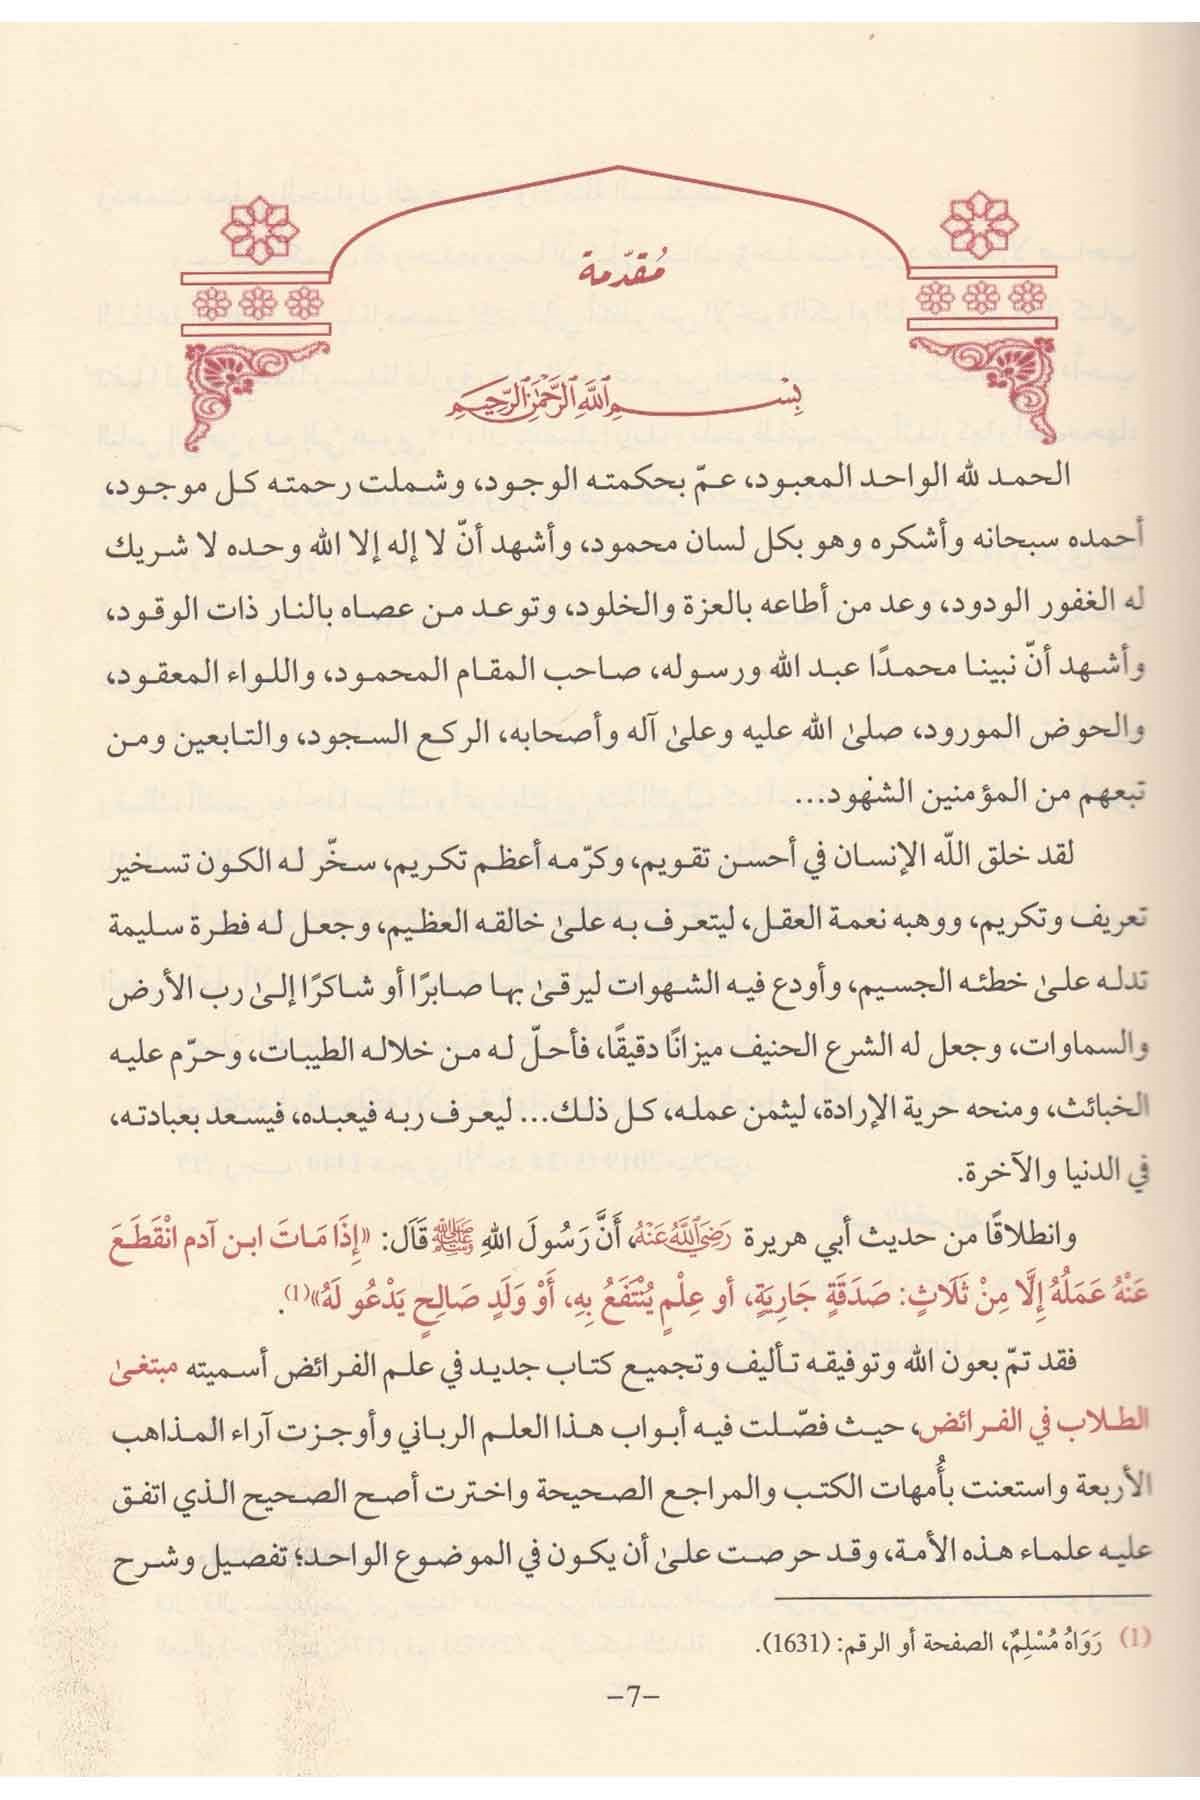 مُقدّمة
بِسْمِ اللَّهِ الرَّحْمَٰنِ الرَّحِيمِ
الحمد لله الواحد المعبود، عمّ بحكمته الوجود، وشملت رحمته كل موجود،
أحمده سبحانه وأشكره وهو بكل لسان محمود، وأشهد أنّ لا إله إلا الله وحده لا شريك
له الغفور الودود، وعد من أطاعه بالعزة والخلود، وتوعد من عصاه بالنار ذات الوقود،
وأشهد أنّ نبينا محمدًا عبد الله ورسوله، صاحب المقام المحمود، واللواء المعقود،
والحوض المورود، صلىٰ الله عليه وعلىٰ آله وأصحابه، الركع السجود، والتابعين ومن
تبعهم من المؤمنين الشهود...
لقد خلق اللّه الإنسان في أحسن تقويم، وكرّمه أعظم تكريم، سخّر له الكون تسخير
تعريف وتكريم، ووهبه نعمة العقل، ليتعرف به علىٰ خالقه العظيم، وجعل له فطرة سليمة
تدله علىٰ خطئه الجسيم، وأودع فيه الشهوات ليرقىٰ بها صابرًا أو شاكرًا إلىٰ رب الأرض
والسماوات، وجعل له الشرع الحنيف ميزانًا دقيقًا، فأحلّ له من خلاله الطيبات، وحرّم عليه
الخبائث، ومنحه حرية الإرادة، ليثمن عمله، كل ذلك... ليعرف ربه فيعبده، فيسعد بعبادته،
في الدنيا والآخرة.
وانطلاقًا من حديث أبي هريرة رَضِيَ اللَّهُ عَنْهُ، أَنَّ رَسُولَ اللهِ ﷺ قَالَ: «إِذَا مَاتَ ابن آدم انْقَطَعَ
عَنْهُ عَمَلُهُ إِلَّا مِنْ ثَلَاثٍ: صَدَقَةٍ جَارِيَةٍ، أو عِلْمٍ يُنْتَفَعُ بِهِ، أَوْ وَلَدٍ صَالِحٍ يَدْعُو لَهُ»(1).
فقد تمّ بعون الله وتوفيقه تأليف وتجميع كتاب جديد في علم الفرائض أسميته مبتغىٰ
الطلاب في الفرائض، حيث فصّلت فيه أبواب هذا العلم الرباني وأوجزت آراء المذاهب
الأربعة واستعنت بأُمهات الكتب والمراجع الصحيحة واخترت أصح الصحيح الذي اتفق
عليه علماء هذه الأمة، وقد حرصت علىٰ أن يكون في الموضوع الواحد؛ تفصيل وشرح
(1) رَوَاهُ مُسْلِمٌ، الصفحة أو الرقم: (1631).
–7–